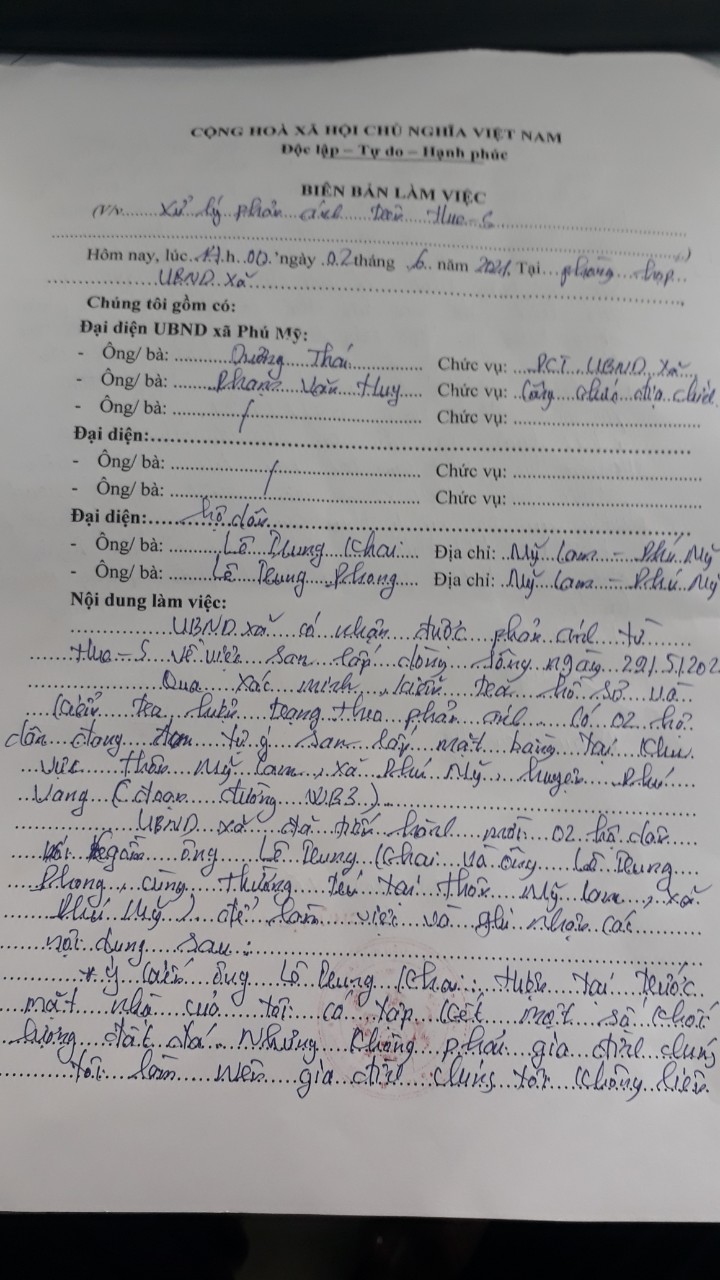 CỘNG HOÀ XÃ HỘI CHỦ NGHĨA VIỆT NAM
Độc lập – Tự do – Hạnh phúc
BIÊN BẢN LÀM VIỆC
(V/v......Xử lý phản ánh trên Hue-S.......
...............)
Hôm nay, lúc.17.h.00.'ngày.02tháng .6. năm 2021. Tại...phòng...họp...
......UBND.xã.......
Chúng tôi gồm có:
Đại diện UBND xã Phú Mỹ:
- Ông/ bà: .........Dương Thái......... Chức vụ: ...PCT...UBND xã...
- Ông/ bà: .......Phan Văn Huy..... Chức vụ: Công chức địa chính
- Ông/ bà: ............/............ Chức vụ: ....................
Đại diện:....................
- Ông/ bà: ............/............ Chức vụ: ....................
- Ông/ bà: ............/............ Chức vụ: ....................
Đại diện:......hộ dân....................
- Ông/ bà: .......Lê Trung Khai..... Địa chỉ: .Mỹ Lam – Phú Mỹ
- Ông/ bà: ......Lê Trung Phong...... Địa chỉ: .Mỹ Lam – Phú Mỹ
Nội dung làm việc:
............UBND xã có nhận được phản ánh từ
....Hue-S về việc san lấp dòng sông ngày 29/5/202
............Qua xác minh, kiểm tra hồ sơ và
kiểm tra hiện trạng theo phản ánh có 02 hộ
dân đang tự ý san lấp mặt bằng tại khu
vực thôn Mỹ Lam, xã Phú Mỹ, huyện Phú
Vang (đoạn đường WB3).
............UBND xã đã tiến hành mời 02 hộ dân
gồm ông Lê Trung Khai và ông Lê Trung
Phong, cùng thường trú tại thôn Mỹ Lam, xã
Phú Mỹ) để làm việc và ghi nhận các
nội dung sau:
......* Ý kiến ông Lê Trung Khai: Hiện tại trước
mặt nhà của tôi có tập kết một số khối
lượng đất đá. Nhưng không phải gia đình chúng
tôi làm nên gia đình chúng tôi không liên